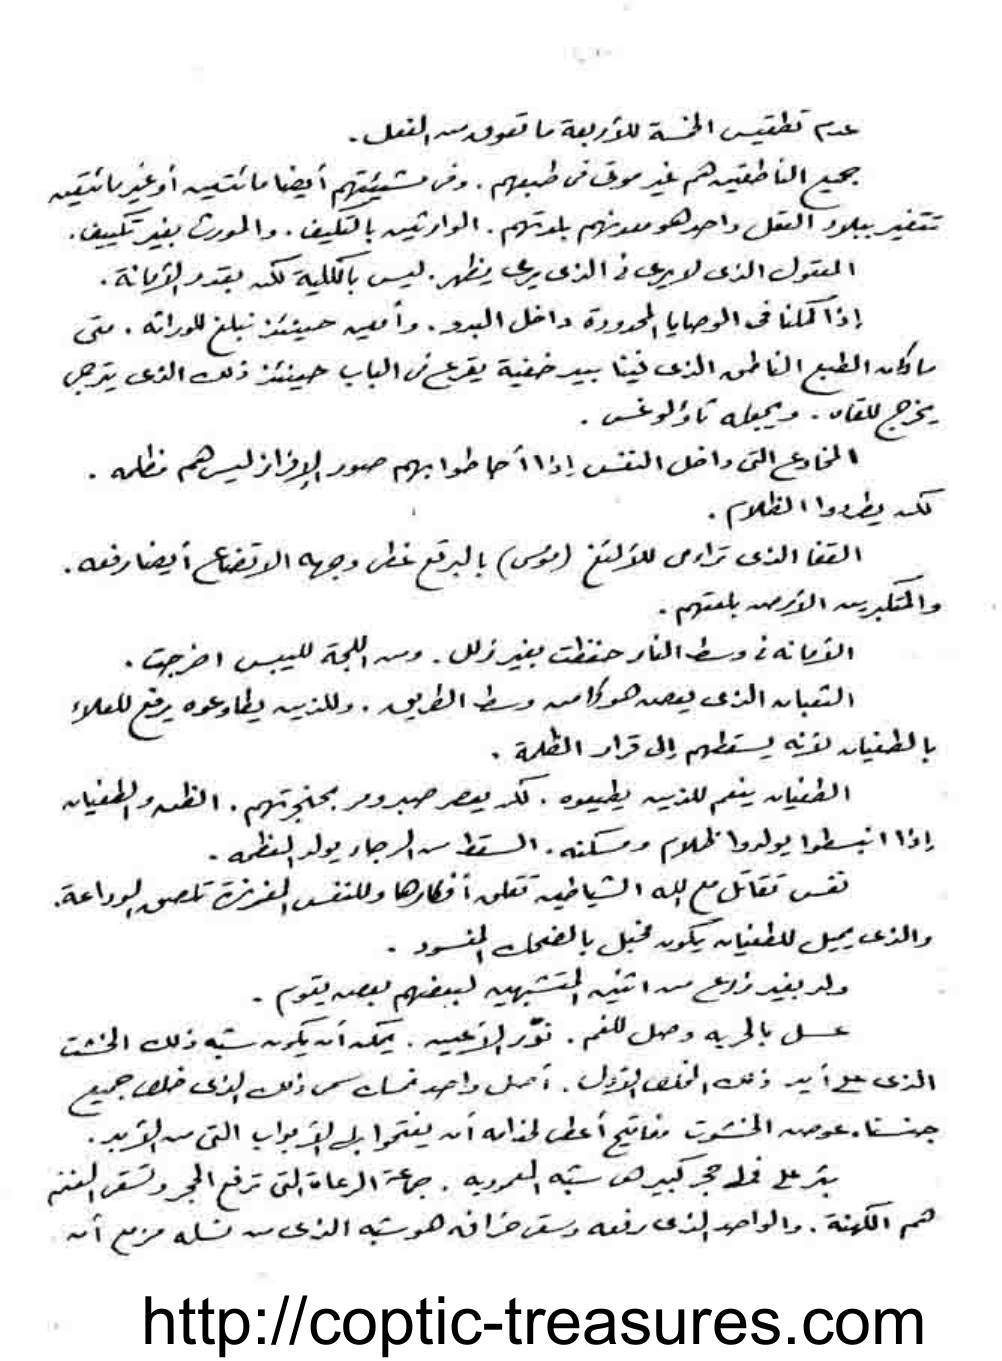 عدم تطقيس الخمسة للأربعة ما تعوق من الفعل.
جميع الناطقين هم غير موتى فى طبعهم. وفى مشيئتهم أيضا مائتين أو غير مائتين
تتغير ببلاد العقل واحد هو معونهم بلدتهم. الوارثين بالتكليف. والمورث بغير تكييف.
المعقول الذى لا يرى فى الذى يرى يظهر. ليس بالكلية لكن بقدر الأمانة.
إذا كملنا فى الوصايا المحدودة داخل البدو. وأمين حينئذ نبلغ للوراثه. متى
ما كان الطبع الناطق الذى فينا بيد خفية يقرع فى الباب حينئذ ذلك الذى يترجى
يخرج للقاه. ويجعله ثاؤلوغس.
المخادع التى داخل النفس إذا أحاطوا بهم صور الإفراز ليس هم مظلمه.
لكن يطردوا الظلام.
القفا الذى تراءى للألثغ (موسى) بالبرقع غطى وجهه الاتضاع أيضا رفعه.
والمتكبرين الأرض بلعتهم.
الأمانه فى وسط النار حفظت بغير زلل. ومن اللجة لليبس اخرجت.
الثعبان الذى يعض هو كامن وسط الطريق. وللذين يطاوعوه يرفع للعلاء
بالطغيان لأنه يسقطهم إلى قرار الظلمة.
الطغيان ينعم للذين يطيعوه. لكن يعصر صبر ومر بحنجرتهم. الظن والطغيان
إذا انبسطوا يولدوا ظلام ومسكنه. السقط من الرجاء يولد العظمه.
نفس تقاتل مع الله الشياطين تقلق أفكارها وللنفس المفرزة تلصق الوداعة.
والذى يميل للطغيان يكون مخبل بالضحك المفسود.
ولد بغير زرع من اثنين المتشبهين لبعضهم بعض يقوم.
عسل بالحربه وصل للفم. نوّر الأعين. يمكن أن يكون شبه ذلك الخشت
الذى على أيد ذلك المخلص الأول. أصل واحد تمسك سمى ذلك الذى خلص جميع
جنسنا. عوض الخشوت مفاتيح أعطى لخدامه أن يفتحوا بها الأبواب التى من الأبد.
بئر على فمها حجر كبير هى شبه المعموديه. جماعة الرعاة التى ترفع الحجر وتسقى الغنم
هم الكهنة. والواحد الذى رفعه وسقى خرافه هو شبه الذى من نسله مزمع أن
http://coptic-treasures.com